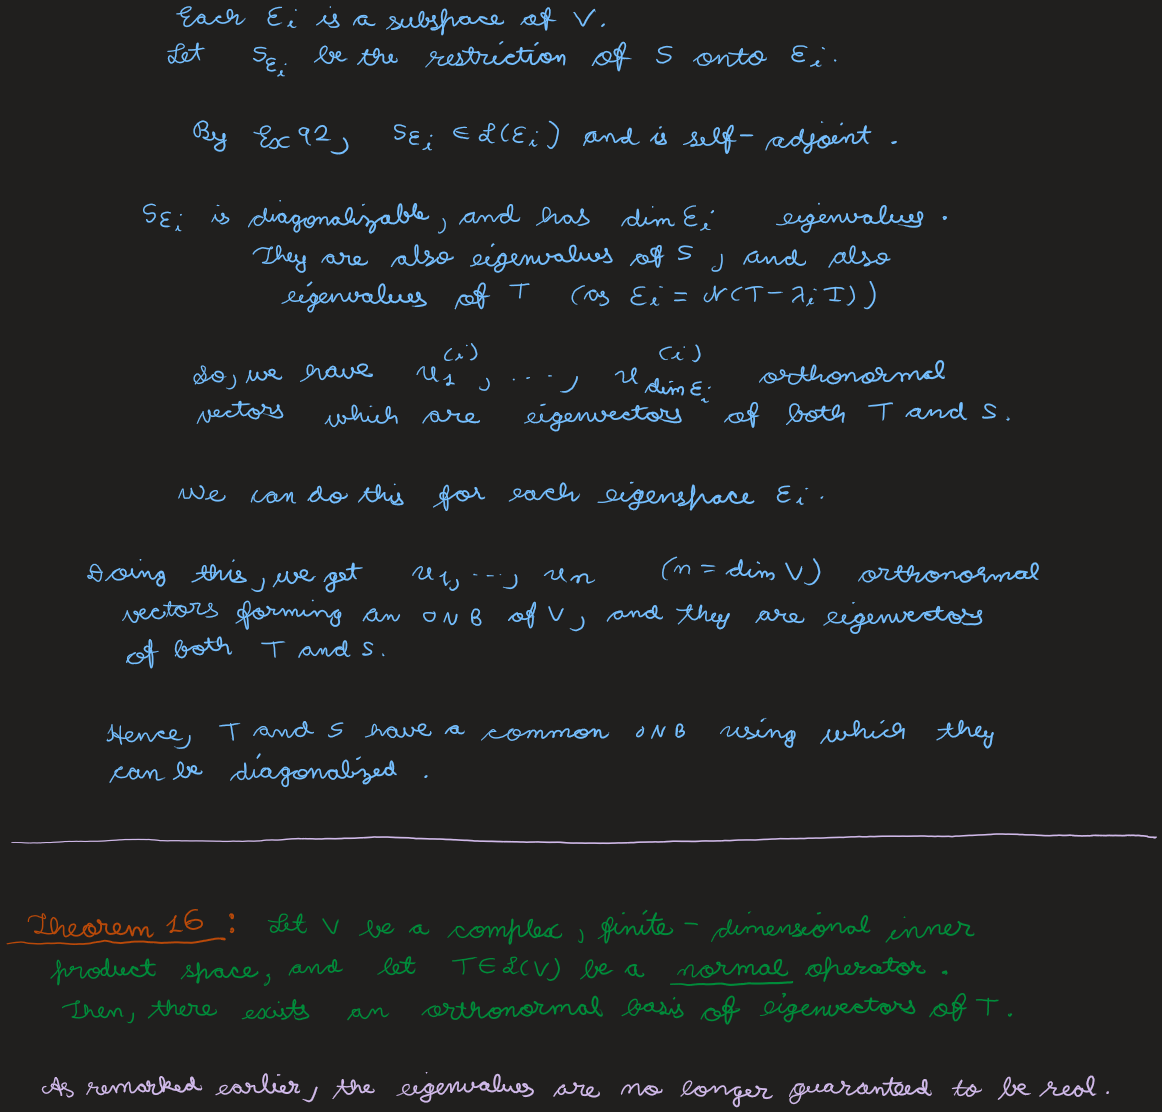 Each Ɛᵢ is a subspace of V.
Let S_Ɛᵢ be the restriction of S onto Ɛᵢ.
By Ex 92, S_Ɛᵢ ∈ ℒ(Ɛᵢ) and is self-adjoint.
S_Ɛᵢ is diagonalizable, and has dim Ɛᵢ eigenvalues.
They are also eigenvalues of S, and also
eigenvalues of T (as Ɛᵢ = 𝒩(T - λᵢI))
So, we have u₁⁽ⁱ⁾, ..., u_{dim Ɛᵢ}⁽ⁱ⁾ orthonormal
vectors which are eigenvectors of both T and S.
We can do this for each eigenspace Ɛᵢ.
Doing this, we get u₁, ..., uₙ (n = dim V) orthonormal
vectors forming an ONB of V, and they are eigenvectors
of both T and S.
Hence, T and S have a common ONB using which they
can be diagonalized.
Theorem 16: Let V be a complex, finite-dimensional inner
product space, and let T ∈ ℒ(V) be a normal operator.
Then, there exists an orthonormal basis of eigenvectors of T.
As remarked earlier, the eigenvalues are no longer guaranteed to be real.